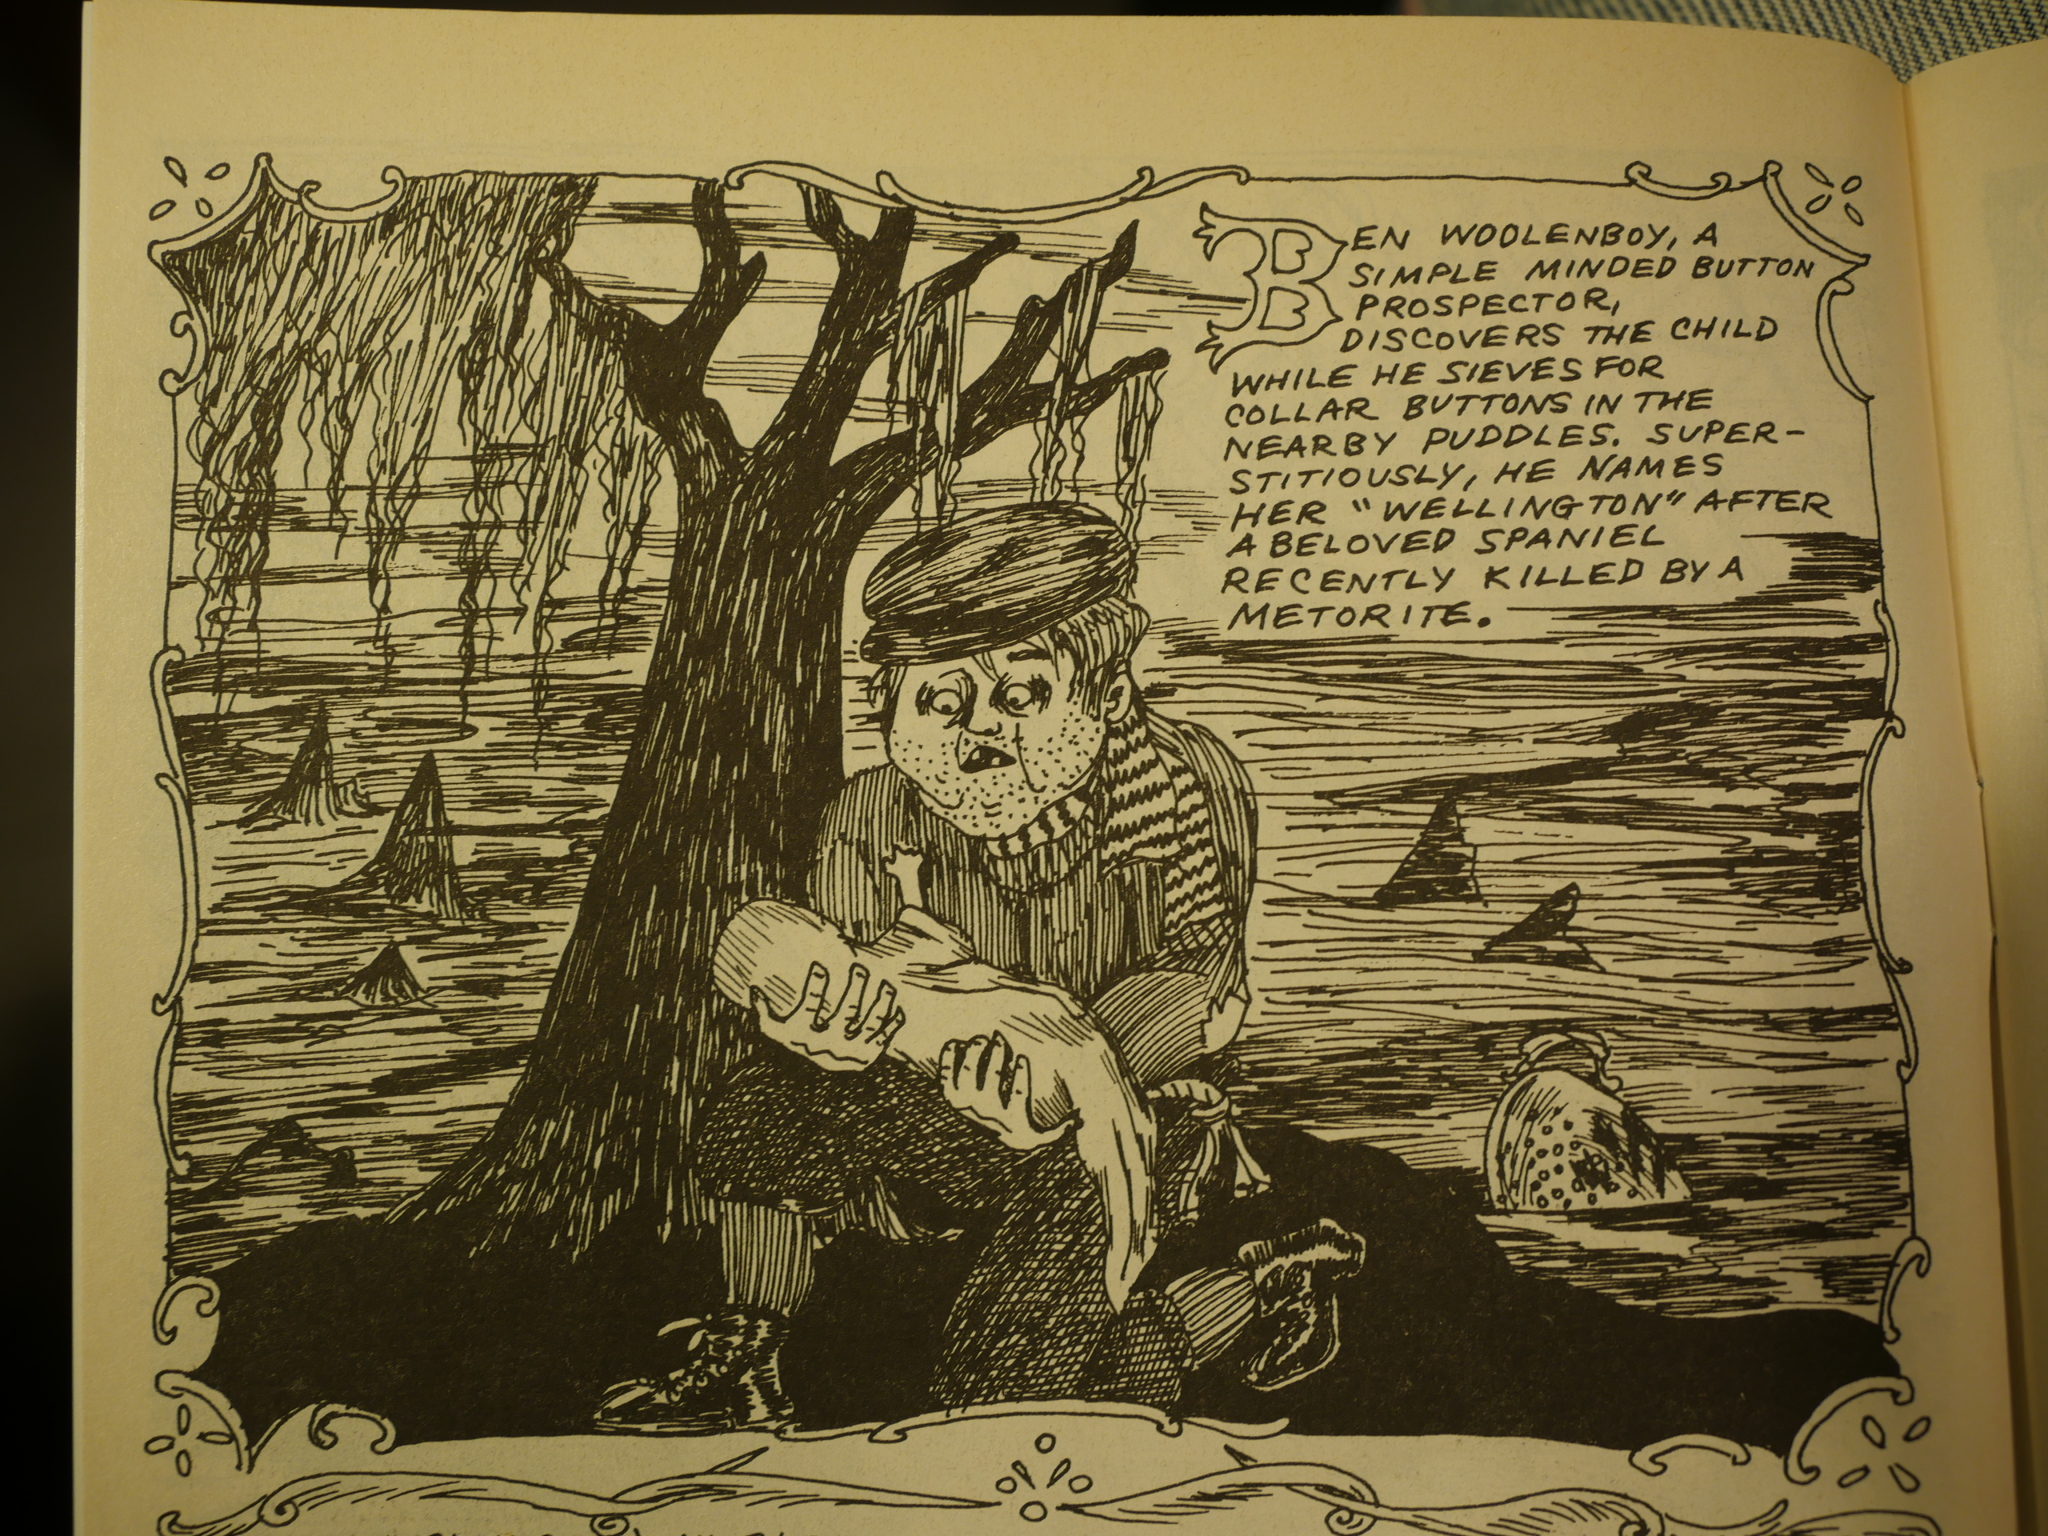 BEN WOOLENBOY, A
SIMPLE MINDED BUTTON
PROSPECTOR,
DISCOVERS THE CHILD
WHILE HE SIEVES FOR
COLLAR BUTTONS IN THE
NEARBY PUDDLES. SUPER-
STITIOUSLY, HE NAMES
HER "WELLINGTON" AFTER
A BELOVED SPANIEL
RECENTLY KILLED BY A
METORITE.